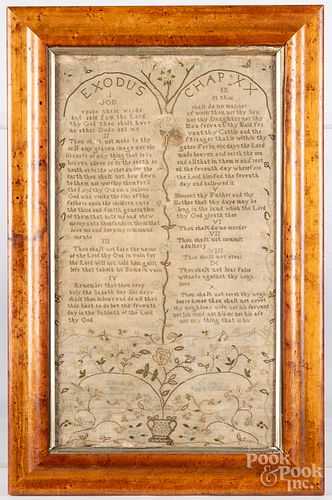 EXODUS
CHAP XX
I
GOD
spake these words
and said I am the Lord
thy God thou shalt have
no other Gods but me
II
Thou shalt not make to thy
self any graven image nor the
likeness of any thing that is in
heaven above or in the earth be
neath or in the water under the
earth thou shalt not bow down
to them nor worship them for I
the Lord thy God am a jealous
God and visits the sins of the
fathers upon the children unto
the third and fourth generation
of them that hate me and shew
mercy unto thousands in them that
love me and keep my command
ments
III
Thou shalt not take the name
of the Lord thy God in vain for
the Lord will not hold him guilt
less that taketh his Name in vain
IV
Remember that thou keep
holy the Sabath day Six days
shalt thou labour and do all that
thou hast to do but the seventh
day is the Sabbath of the Lord
thy God
In it thou
shalt do no manner
of work thou nor thy Son
nor thy Daughter nor thy
Man servant thy Maid ser
vant thy Cattle and the
Stranger that is within thy
gates For in six days the Lord
made heaven and earth the sea
and all that in them is and rest
ed the seventh day wherefore
the Lord blessed the seventh
day and hallowed it
V
Honour thy Father and thy
Mother that thy days may be
long in the land which the Lord
thy God giveth thee
VI
Thou shalt do no murder
VII
Thou shalt not commit
adultery
VIII
Thou shalt not steal
IX
Thou shalt not bear false
witness against thy neigh
bour
X
Thou shalt not covet thy neigh
bours house thou shalt not covet
thy neighbours wife nor his servant
nor his maid nor his ox nor his ass
nor any thing that is his
Pook &
Pook Inc.